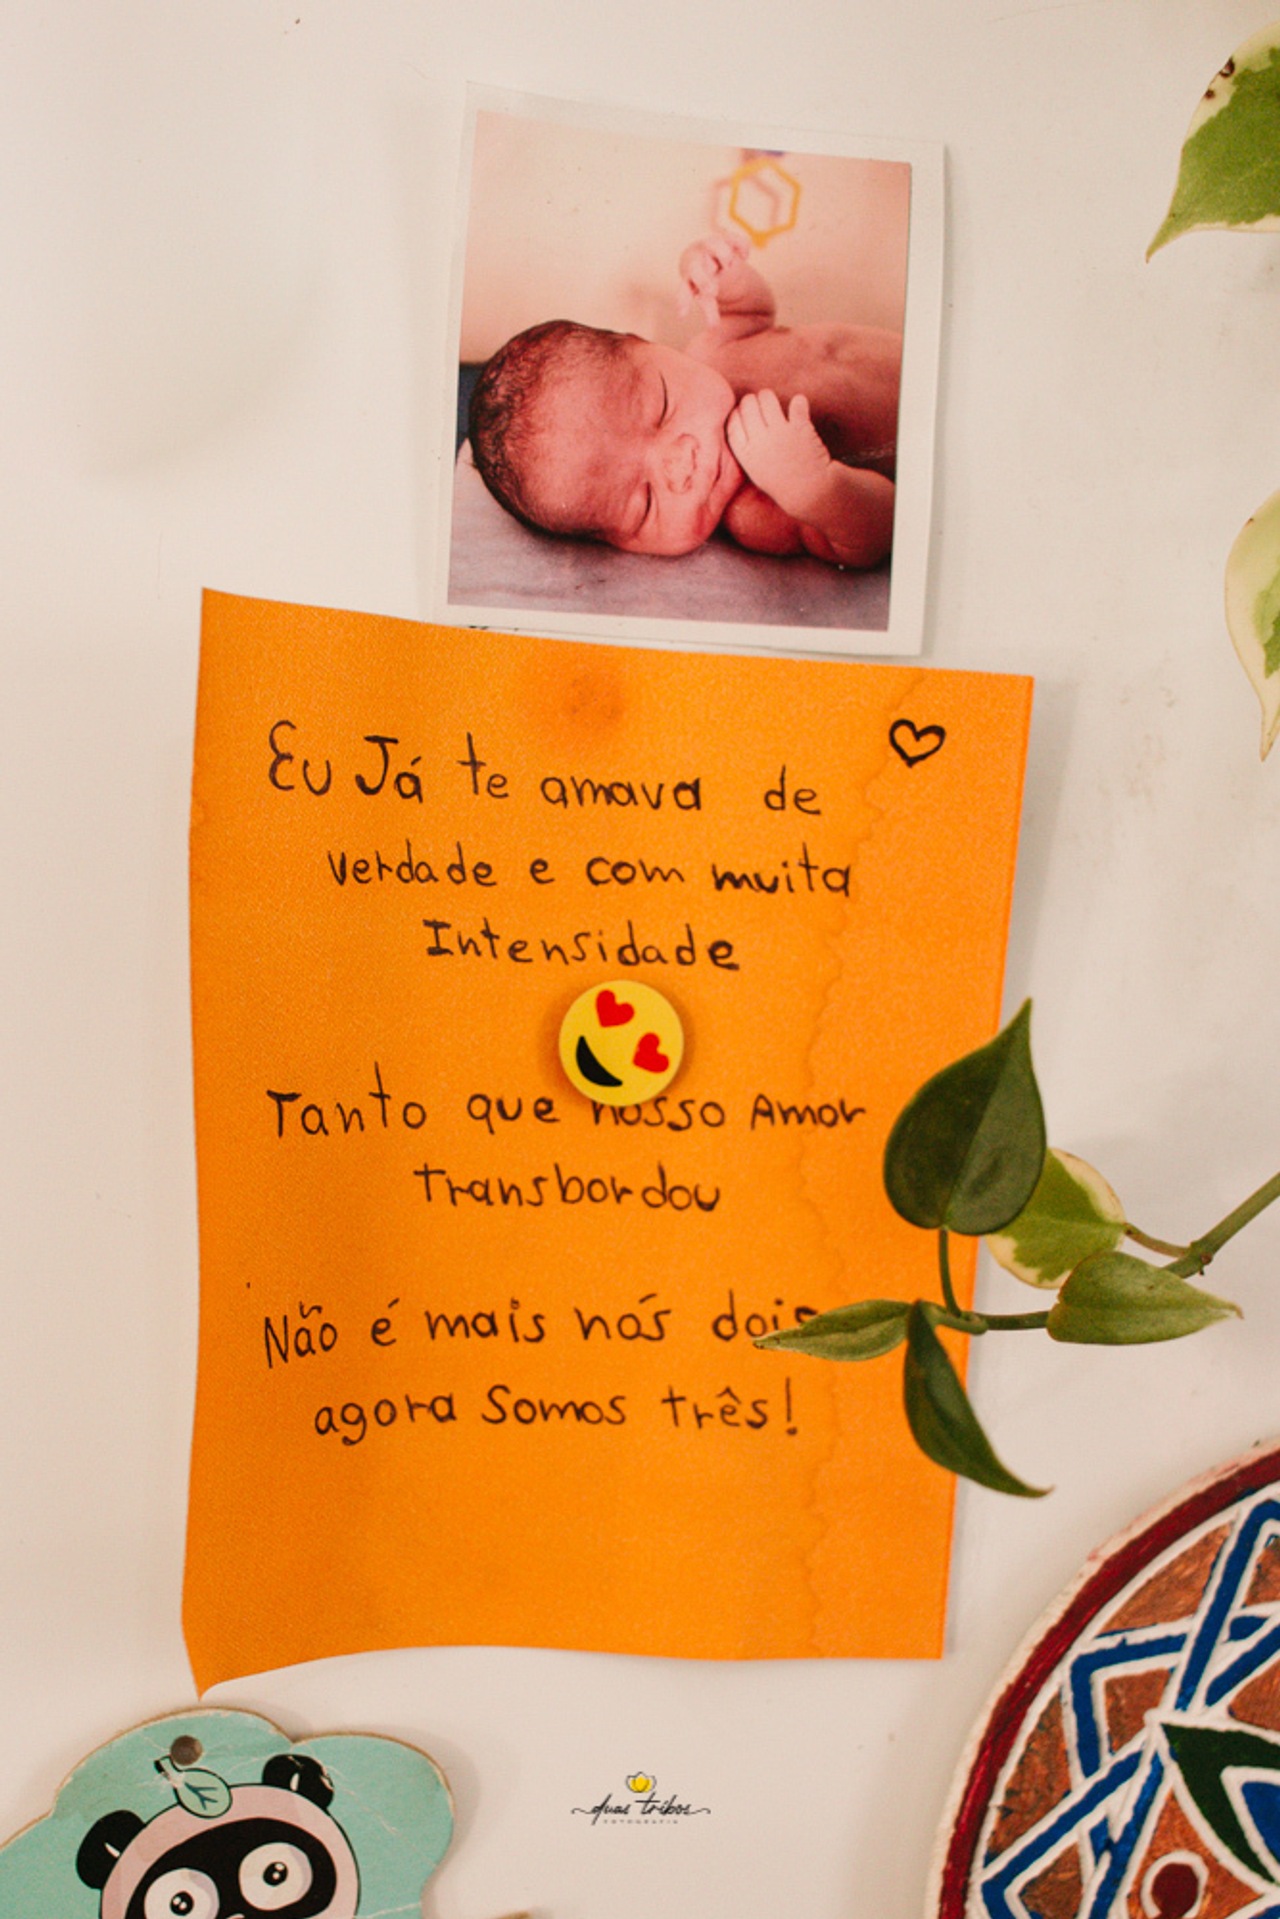 Eu Já te amava de
verdade e com muita
Intensidade
Tanto que nosso Amor
Transbordou
Não é mais nós dois
agora Somos três!
duas tribos
FOTOGRAFIA